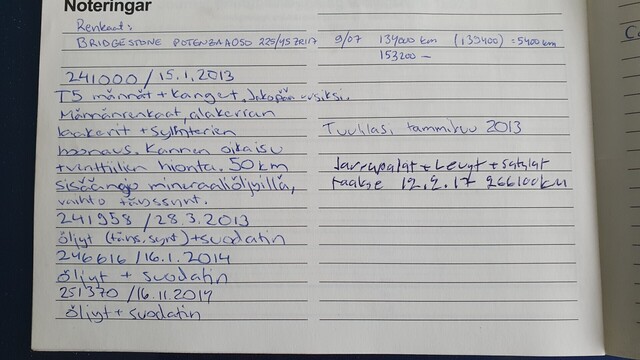 Noteringar
Renkaat:
BRIDGESTONE POTENZA A050 225/45ZR17
241000 / 15.1.2013
T5 männät + kanget, Jakopää uusiksi.
Männänrenkaat, alakerran
laakerit + Sylinterien
hoonaus. Kannen oikaisu
+ venttiilien hionta. 50 km
sisäänajo mineraaliöljyillä,
vaihto täyssynt.
241958 / 28.3.2013
öljyt (täys.synt) + suodatin
246616 / 16.1.2014
öljyt + suodatin
251370 / 16.11.2014
öljyt + suodatin
9/07 134000 km (139400) = 5400 km
153200 —
Tuulilasi tammikuu 2013
Jarrupalat + Levyt + satulat
taakse 12.2.17 266100km